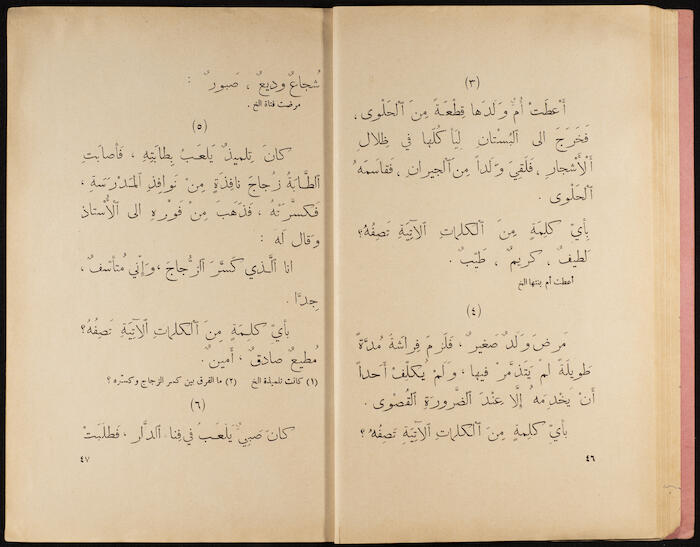 (٣)
أَعطَتْ أُمٌّ وَلَدَها قِطْعَةً مِنَ ٱلحَلْوى ،
فَخَرَجَ الى البُسْتانِ لِيَأكُلَها في ظِلالِ
ٱلأَشجارِ ، فَلَقِيَ وَلَداً مِنَ ٱلجيرانِ ، فَقاسَمَهُ
ٱلحَلْوى .
بِأَيِّ كَلِمَةٍ مِنَ ٱلكَلِماتِ ٱلآتِيَةِ تَصِفُهُ؟
لَطيفٌ ، كَريمٌ ، طَيِّبٌ .
أعطت أم بنتها الخ
(٤)
مَرِضَ وَلَدٌ صَغيرٌ ، فَلَزِمَ فِراشَهُ مُدَّةً
طَويلَةً لَمْ يَتَذَمَّرْ فيها ، وَلَمْ يُكَلِّفْ أَحَداً
أَنْ يَخْدِمَهُ إِلّا عِنْدَ الضَّرورَةِ القُصْوى .
بِأَيِّ كَلِمَةٍ مِنَ ٱلكَلِماتِ ٱلآتِيَةِ تَصِفُهُ ؟
٤٦
شُجاعٌ وَديعٌ ، صَبورٌ :
مرضت فتاة الخ .
(٥)
كانَ تِلميذٌ يَلعَبُ بِطابَتِهِ ، فَأَصابَتِ
ٱلطّابَةُ زُجاجَ نافِذَةٍ مِنْ نَوافِذِ المَدْرَسَةِ ،
فَكَسَّرَتْهُ ، فَذَهَبَ مِنْ فَوْرِهِ الى ٱلأُستاذِ
وَقال لَهُ :
انا ٱلَّذي كَسَّرَ ٱلزُّجاجَ ، وَإِنّي مُتَأَسِّفٌ ،
جِدًّا .
بأَيِّ كَلِمَةٍ مِنَ ٱلكَلِماتِ ٱلآتِيَةِ تَصِفُهُ؟
مُطيعٌ صادِقٌ ، أَمينٌ .
(١) كانت تلميذة الخ (٢) ما الفرق بين كسر الزجاج وكسّره ؟
(٦)
كانَ صَبِيٌّ يَلعَبُ في فِناءِ ٱلدّارِ ، فَطَلَبَتْ
٤٧